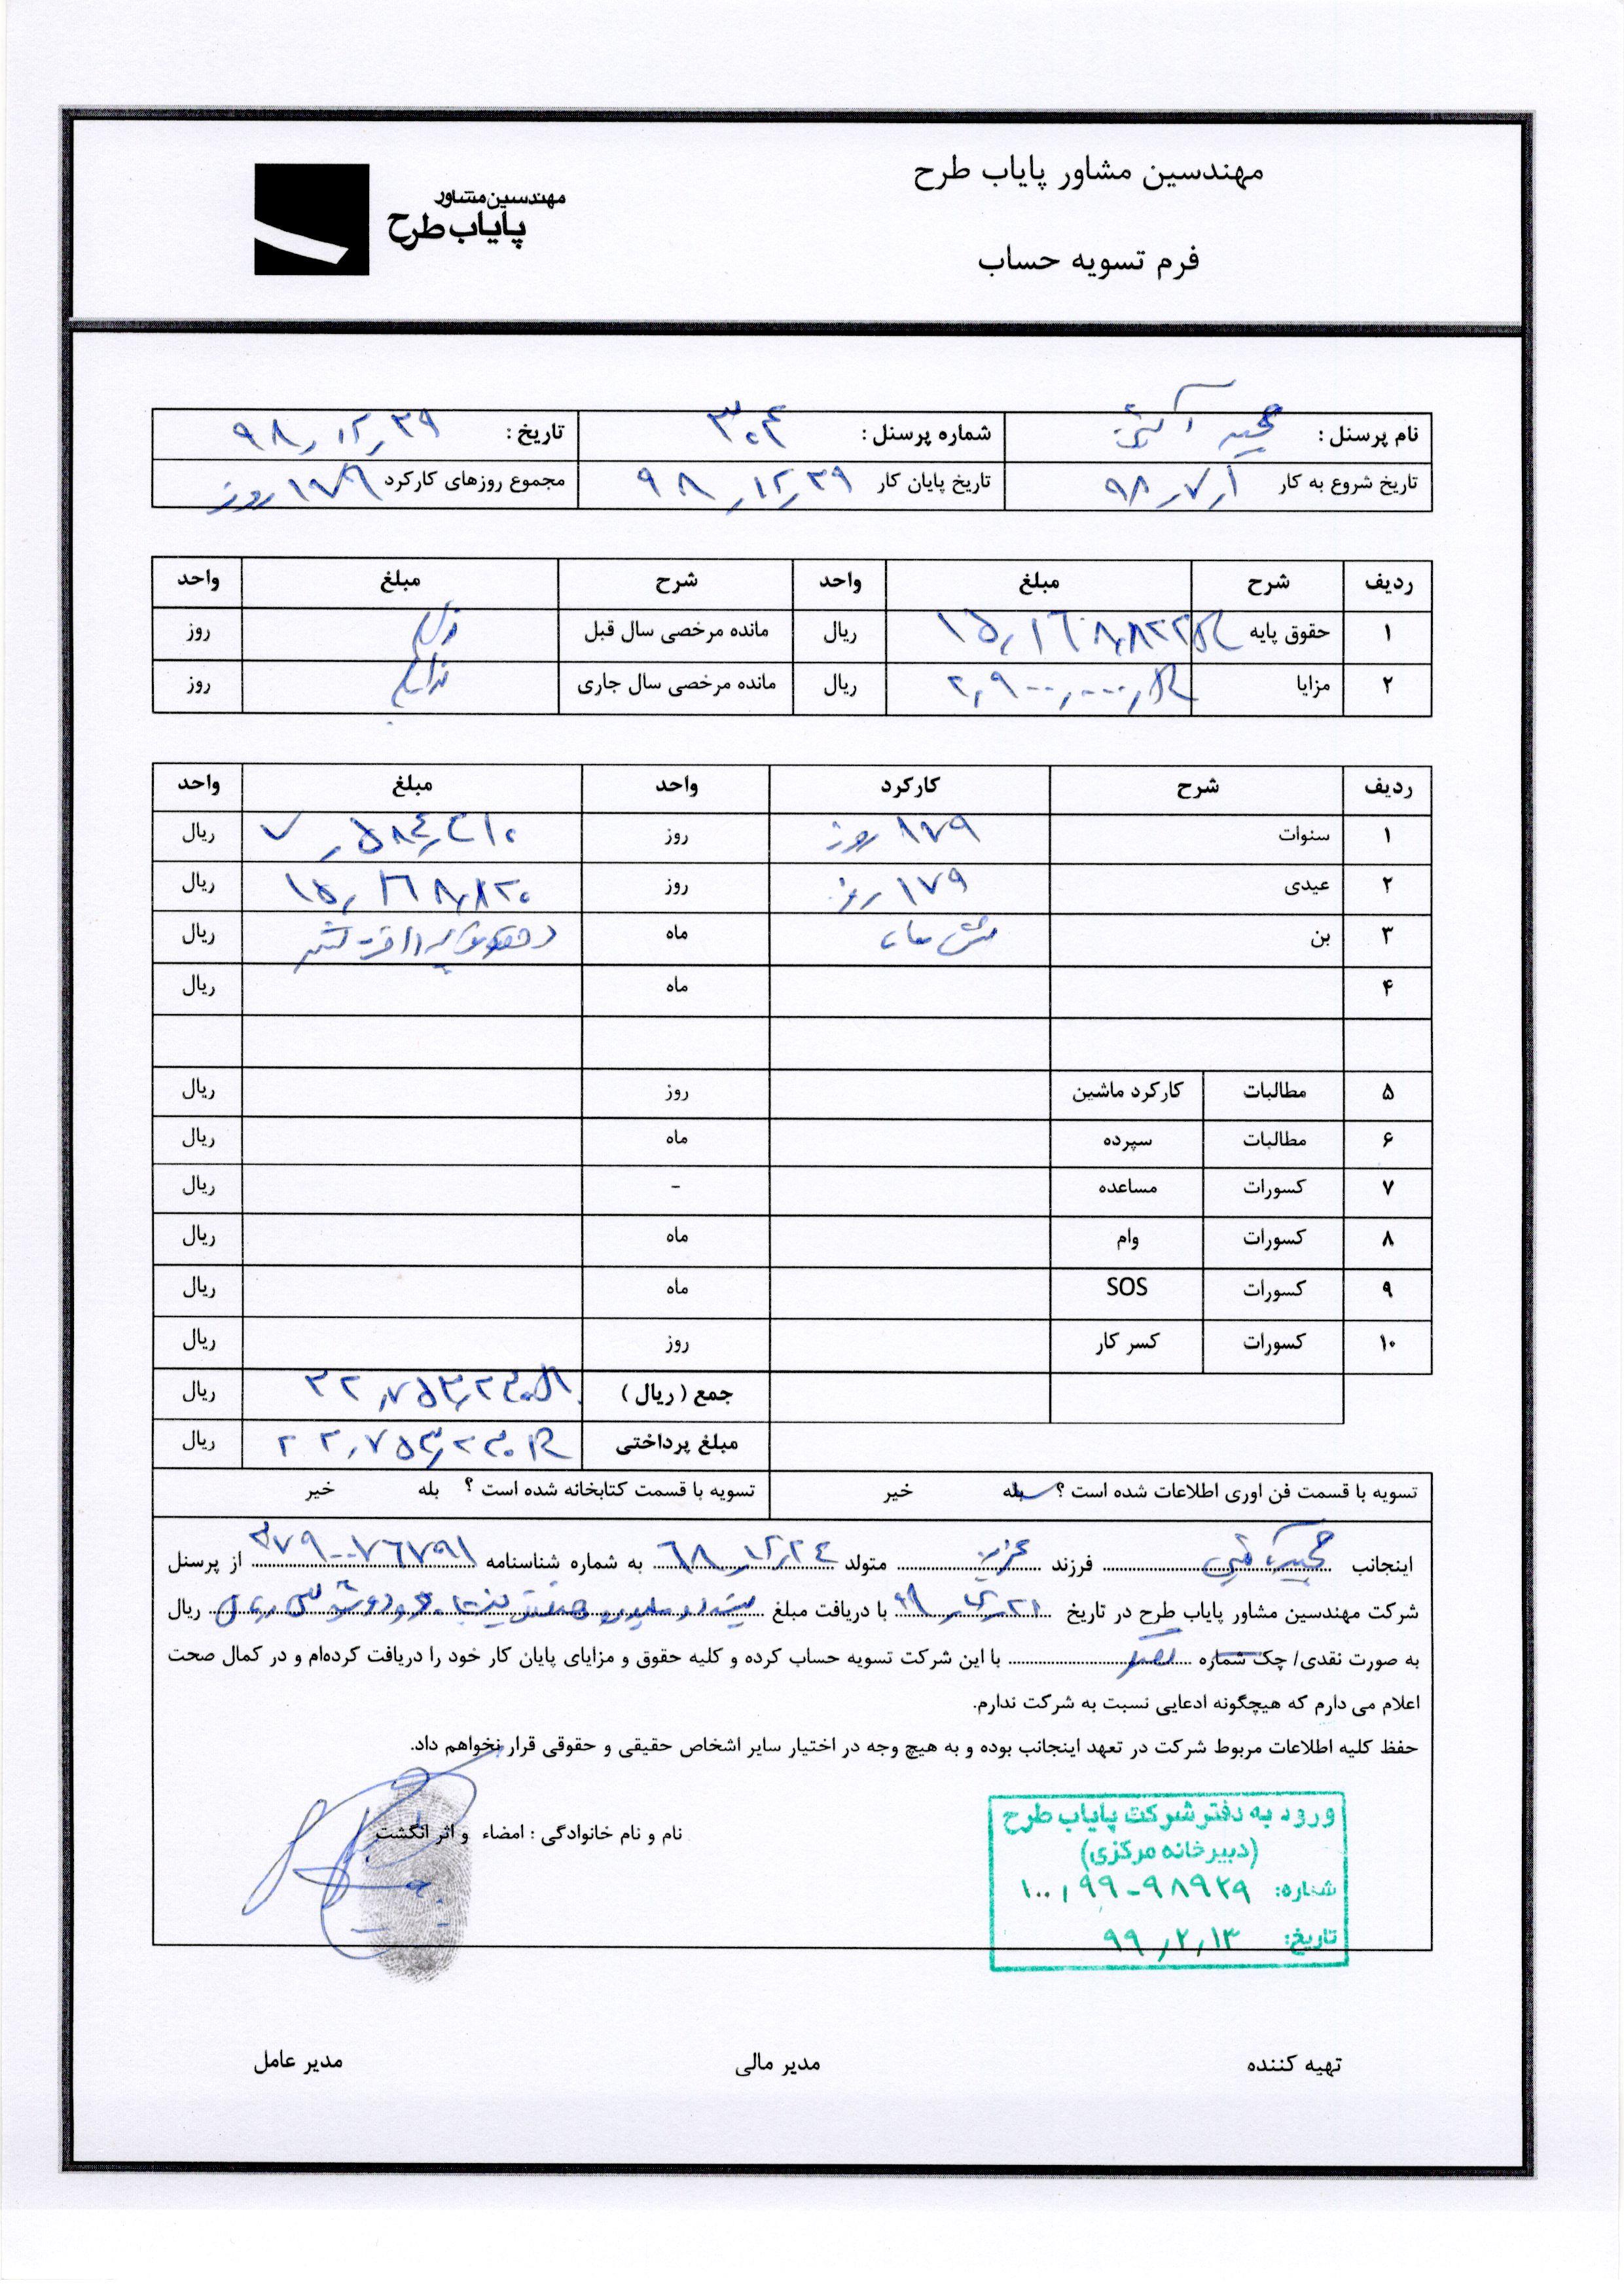 مهندسین مشاور پایاب طرح
مهندسین مشاور
پایاب طرح
فرم تسویه حساب
نام پرسنل : شماره پرسنل : ۳۰۴ تاریخ : ۹۸٫۱۲٫۲۹
تاریخ شروع به کار ۹۸٫۷٫۱ تاریخ پایان کار ۹۸٫۱۲٫۲۹ مجموع روزهای کارکرد ۱۷۹ روز
ردیف شرح مبلغ واحد شرح مبلغ واحد
۱ حقوق پایه ریال مانده مرخصی سال قبل روز
۲ مزایا ۲٫۹۰۰٫۰۰۰ ریال مانده مرخصی سال جاری ندارم روز
ردیف شرح کارکرد واحد مبلغ واحد
۱ سنوات ۱۷۹ روز روز ۷٫۵۸۴٫۴۱۰ ریال
۲ عیدی ۱۷۹ روز روز ۱۵٫۱۶۸٫۸۲۰ ریال
۳ بن شش ماه ماه ریال
۴ ماه ریال
۵ مطالبات کارکرد ماشین روز ریال
۶ مطالبات سپرده ماه ریال
۷ کسورات مساعده - ریال
۸ کسورات وام ماه ریال
۹ کسورات SOS ماه ریال
۱۰ کسورات کسر کار روز ریال
جمع ( ریال ) ۲۲٫۷۵۳٫۲۳۰ ریال
مبلغ پرداختی ۲۲٫۷۵۳٫۲۳۰ ریال
تسویه با قسمت فن اوری اطلاعات شده است ؟ بله خیر تسویه با قسمت کتابخانه شده است ؟ بله خیر
اینجانب فرزند عزیز متولد ۶۸٫۱۲٫۲۴ به شماره شناسنامه ۳۷۹۰۰۷۶۷۹۱ از پرسنل
شرکت مهندسین مشاور پایاب طرح در تاریخ با دریافت مبلغ ریال
به صورت نقدی/ چک شماره با این شرکت تسویه حساب کرده و کلیه حقوق و مزایای پایان کار خود را دریافت کرده‌ام و در کمال صحت
اعلام می دارم که هیچگونه ادعایی نسبت به شرکت ندارم.
حفظ کلیه اطلاعات مربوط شرکت در تعهد اینجانب بوده و به هیچ وجه در اختیار سایر اشخاص حقیقی و حقوقی قرار نخواهم داد.
نام و نام خانوادگی : امضاء و اثر انگشت
ورود به دفتر شرکت پایاب طرح
(دبیرخانه مرکزی)
شماره: ۱۰۰٫۹۹-۹۸۹۲۹
تاریخ: ۹۹٫۲٫۱۳
تهیه کننده مدیر مالی مدیر عامل